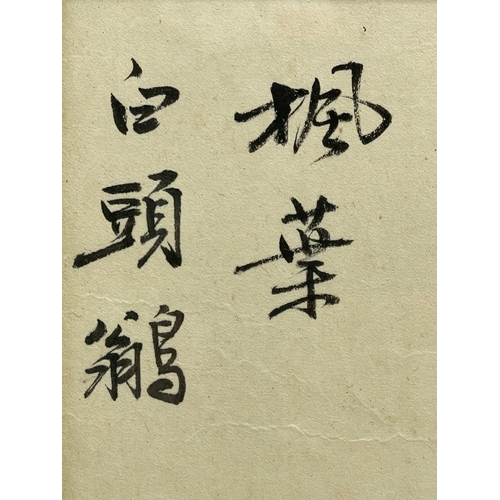 楓葉
白頭鶲